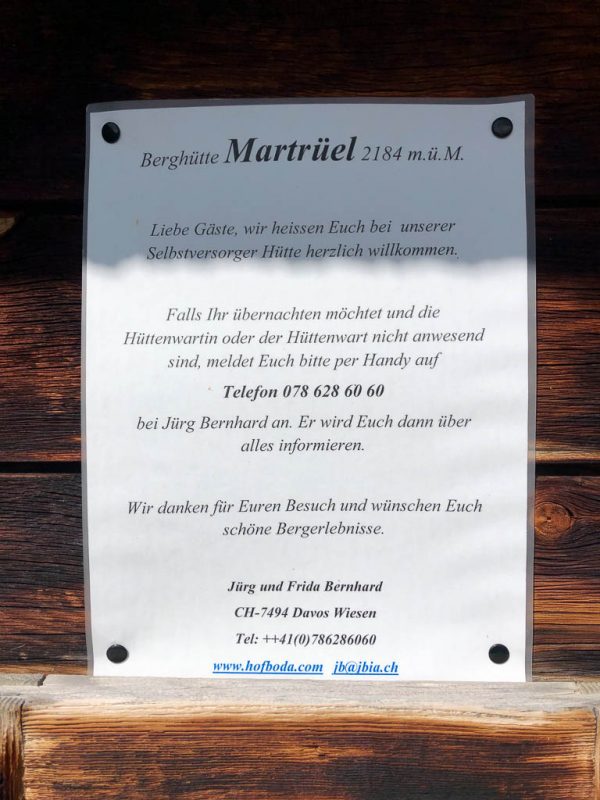 Berghütte Martrüel 2184 m.ü.M.
Liebe Gäste, wir heissen Euch bei unserer
Selbstversorger Hütte herzlich willkommen.
Falls Ihr übernachten möchtet und die
Hüttenwartin oder der Hüttenwart nicht anwesend
sind, meldet Euch bitte per Handy auf
Telefon 078 628 60 60
bei Jürg Bernhard an. Er wird Euch dann über
alles informieren.
Wir danken für Euren Besuch und wünschen Euch
schöne Bergerlebnisse.
Jürg und Frida Bernhard
CH-7494 Davos Wiesen
Tel: ++41(0)786286060
www.hofboda.com jb@jbia.ch